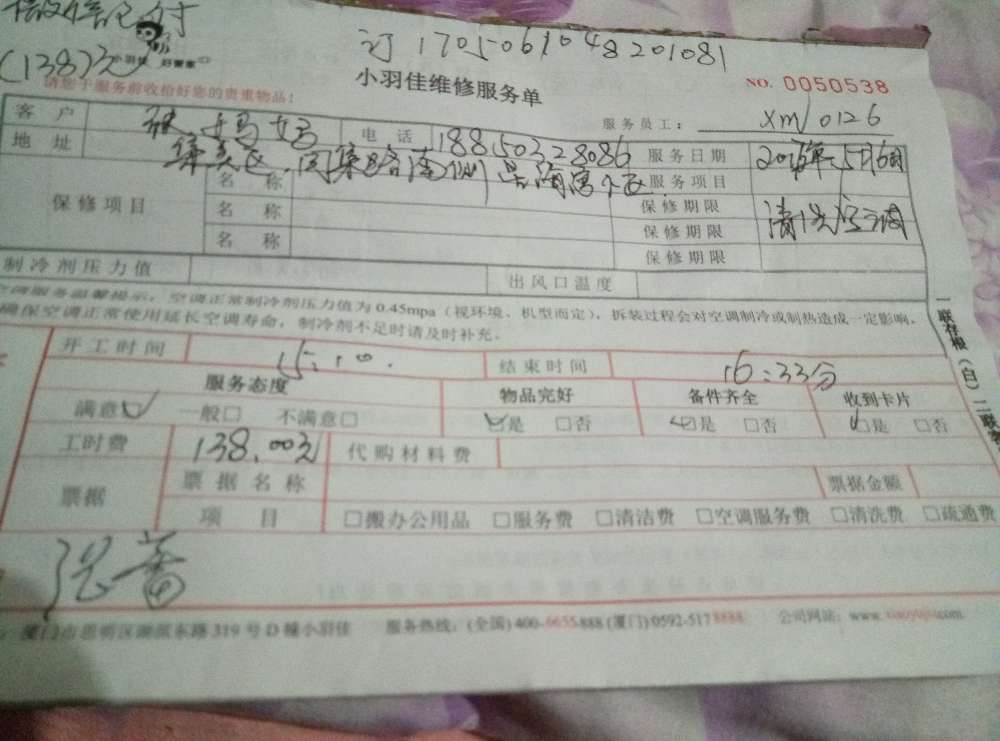 微信已付
(138)元
小羽佳 好管家
订 170506104820108 1
小羽佳维修服务单
NO. 0050538
请您于服务前收拾好您的贵重物品!
服务员工: xm/0126
客户 妈妈 电话 18850328086 服务日期
地址 集美区 同集路 服务项目 清洗空调
保修项目 名称 保修期限
名称 保修期限
名称 保修期限
制冷剂压力值 出风口温度
空调服务温馨提示,空调正常制冷剂压力值为0.45mpa(视环境、机型而定),拆装过程会对空调制冷或制热造成一定影响。
确保空调正常使用延长空调寿命,制冷剂不足时请及时补充。
一联存根(白)二联
开工时间 15:10. 结束时间 16:33分
服务态度 物品完好 备件齐全 收到卡片
满意☑ 一般□ 不满意□ ☑是 □否 ☑是 □否 ☑是 □否
工时费 138.00元 代购材料费
票据 票据名称 票据金额
项目 □搬办公用品 □服务费 □清洁费 □空调服务费 □清洗费 □疏通费
厦门市思明区湖滨东路319号D幢小羽佳 服务热线:(全国)400-6655888(厦门)0592-5178888 公司网站:www.xiaoyujia.com